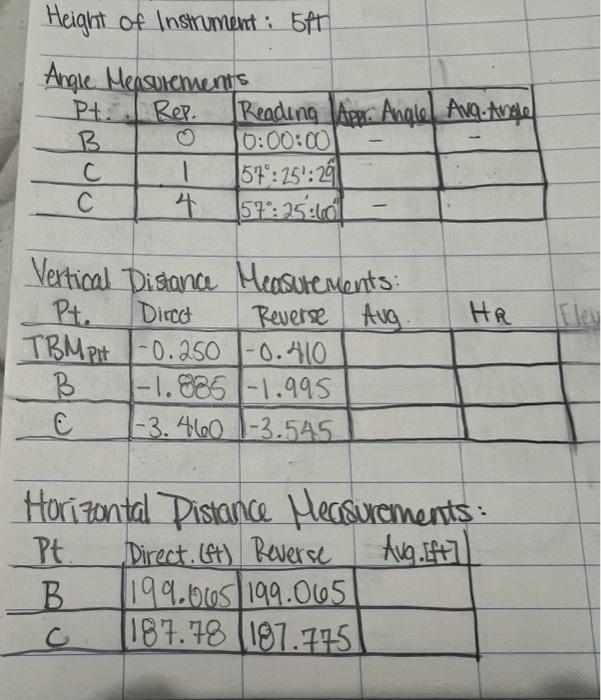 Height of Instrument: 5ft
Angle Measurements
Pt. Rep. Reading Appr. Angle Avg. Angle
B 0 0:00:00 - -
C 1 57°:25':29"
C 4 57°:25':60" -
Vertical Distance Measurements:
Pt. Direct Reverse Avg. HR Elev
TBM -0.250 -0.410
B -1.885 -1.995
C -3.460 -3.545
Horizontal Distance Measurements:
Pt Direct.(ft) Reverse Avg.[ft]
B 199.065 199.065
C 187.78 187.775